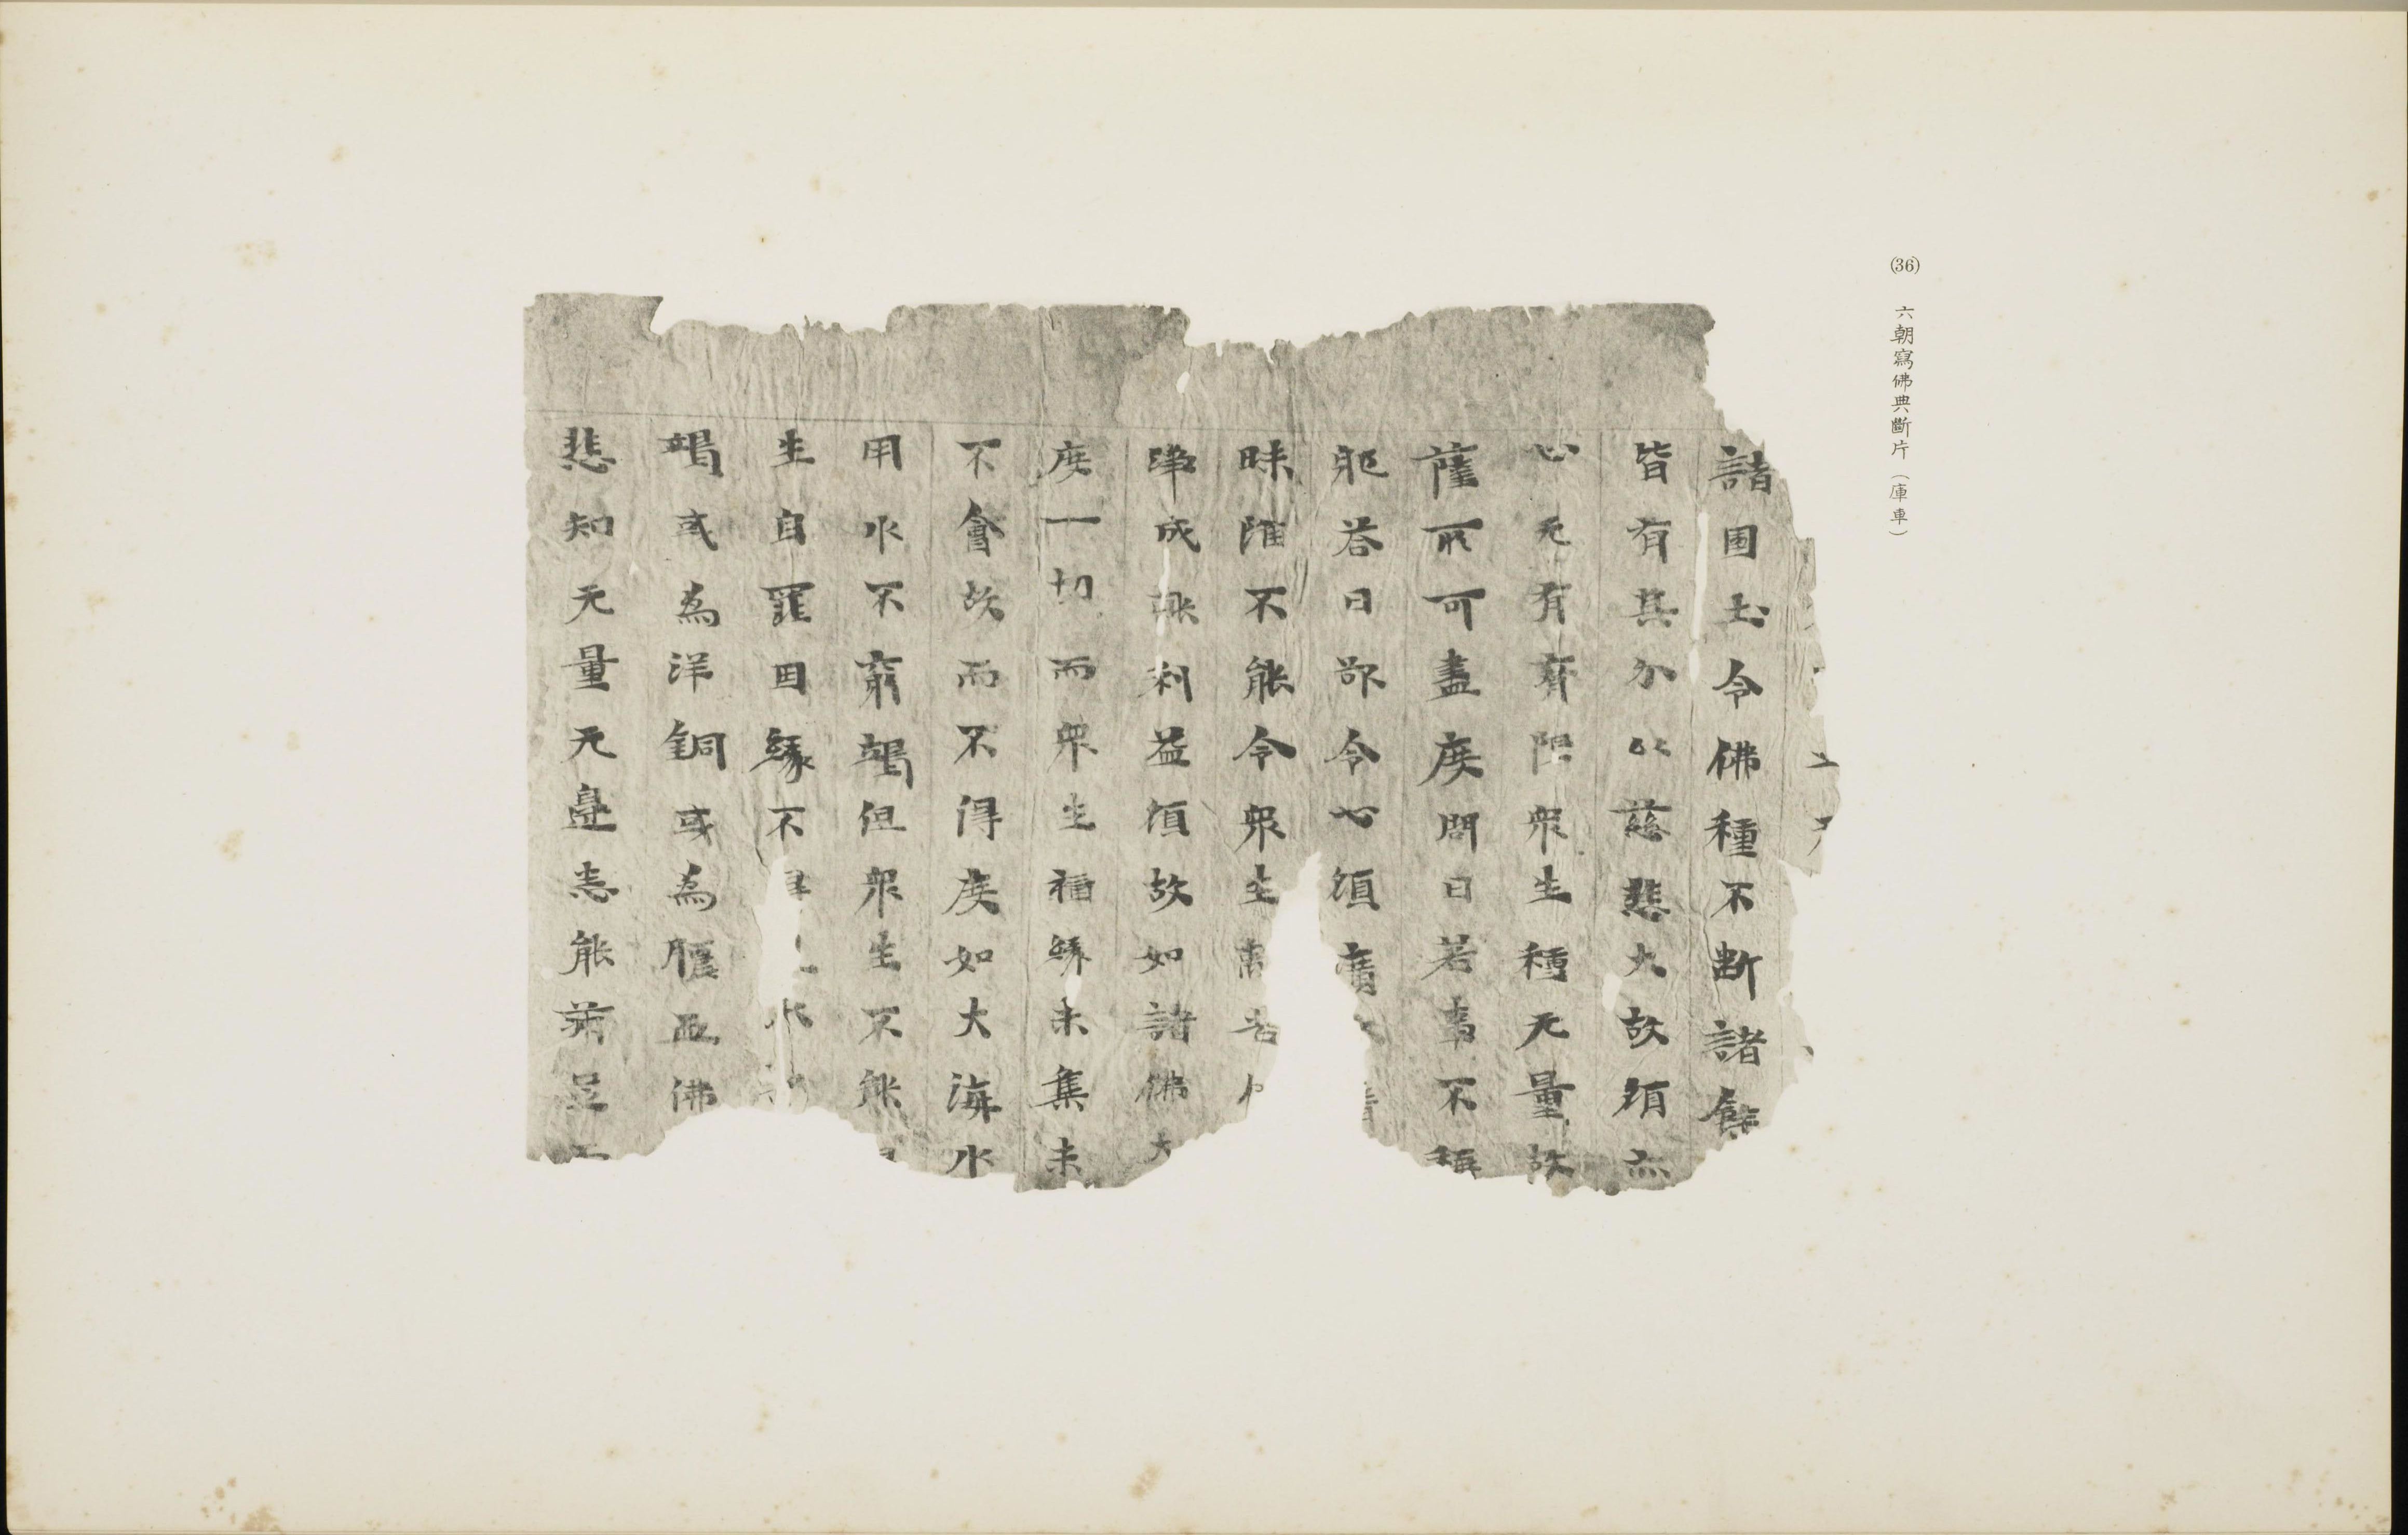 (36) 六朝寫佛典斷片（庫車）
諸国土令佛種不断諸餘
皆有其分以慈悲大故須
心无有齊限衆生種无量故
薩所可盡度問曰若事不稱
耶荅曰欲令心
昧唯不能令衆生
淨成利益須故如諸佛大
度一切而衆生福緣未集未
不會故而不得度如大海水
用水不窮竭但衆生不能
生自罪因緣不
竭或為洋銅或為膿血佛
悲知无量无邊悉能滿足